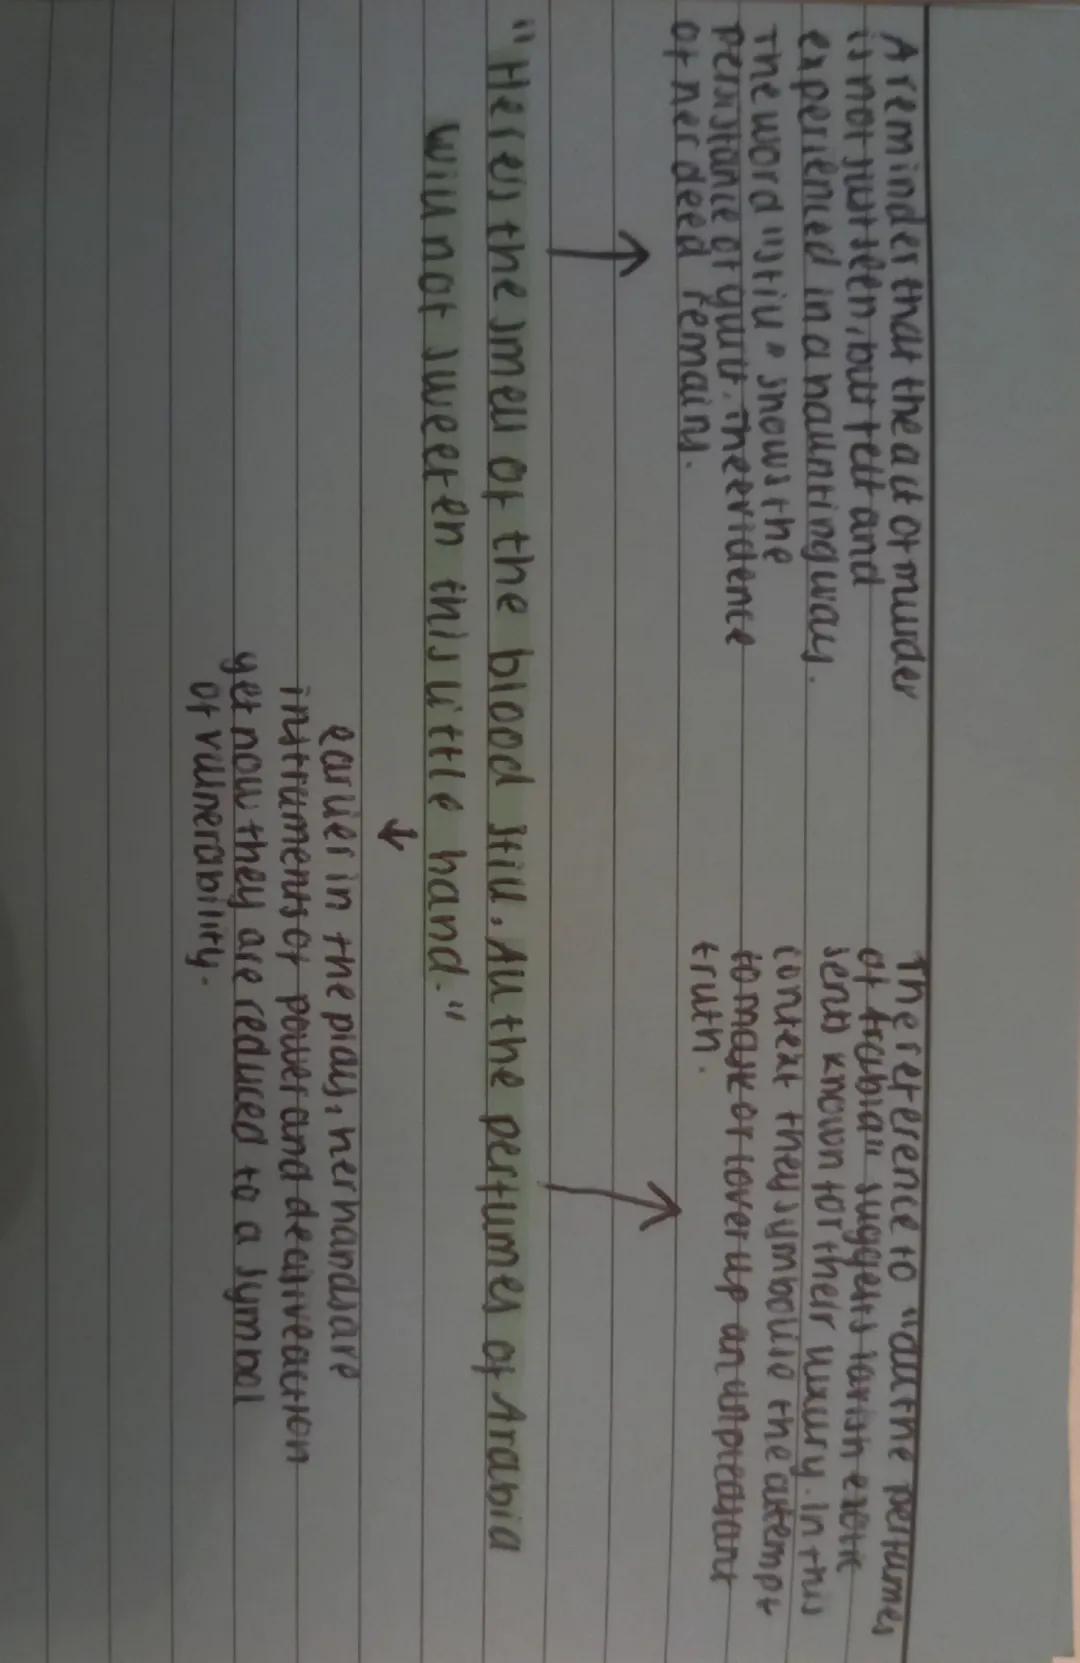 A reminder that the act of murder
is not just seen, but felt and
experienced in a haunting way.
The word "still" shows the
persistance of guilt. The evidence
of her deed remains.
The reference to "all the perfumes
of Arabia" suggests lavish exotic
sents known for their luxury. In this
context they symbolise the attempt
to mask or cover up an unpleasant
truth.
"Here's the smell of the blood still. All the perfumes of Arabia
will not sweeten this little hand."
earlier in the play, her hands are
instruments of power and decisive action
yet now they are reduced to a symbol
of vulnerability.